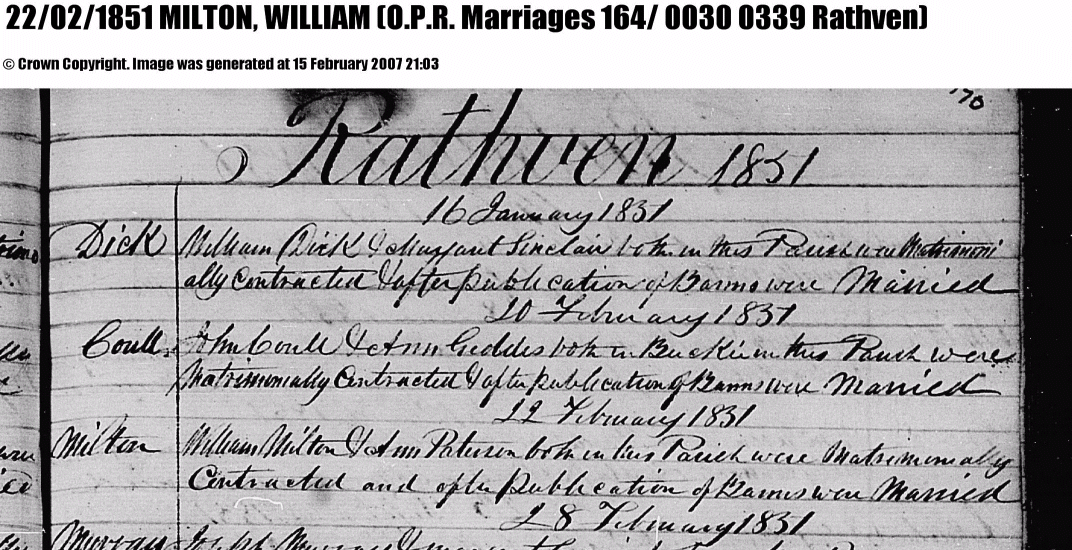 22/02/1851 MILTON, WILLIAM (O.P.R. Marriages 164/ 0030 0339 Rathven)
© Crown Copyright. Image was generated at 15 February 2007 21:03
170
Rathven 1851
16 January 1851
Dick William Dick & Margaret Sinclair both in this Parish were Matrimoni
ally Contracted & after publication of Banns were Married
20 February 1851
Coull John Coull & Ann Geddes both in Buckie in this Parish were
Matrimonially Contracted & after publication of Banns were Married
22 February 1851
Milton William Milton & Ann Paterson both in this Parish were Matrimonially
Contracted and after publication of Banns were Married
28 February 1851
Murray Joseph Murray